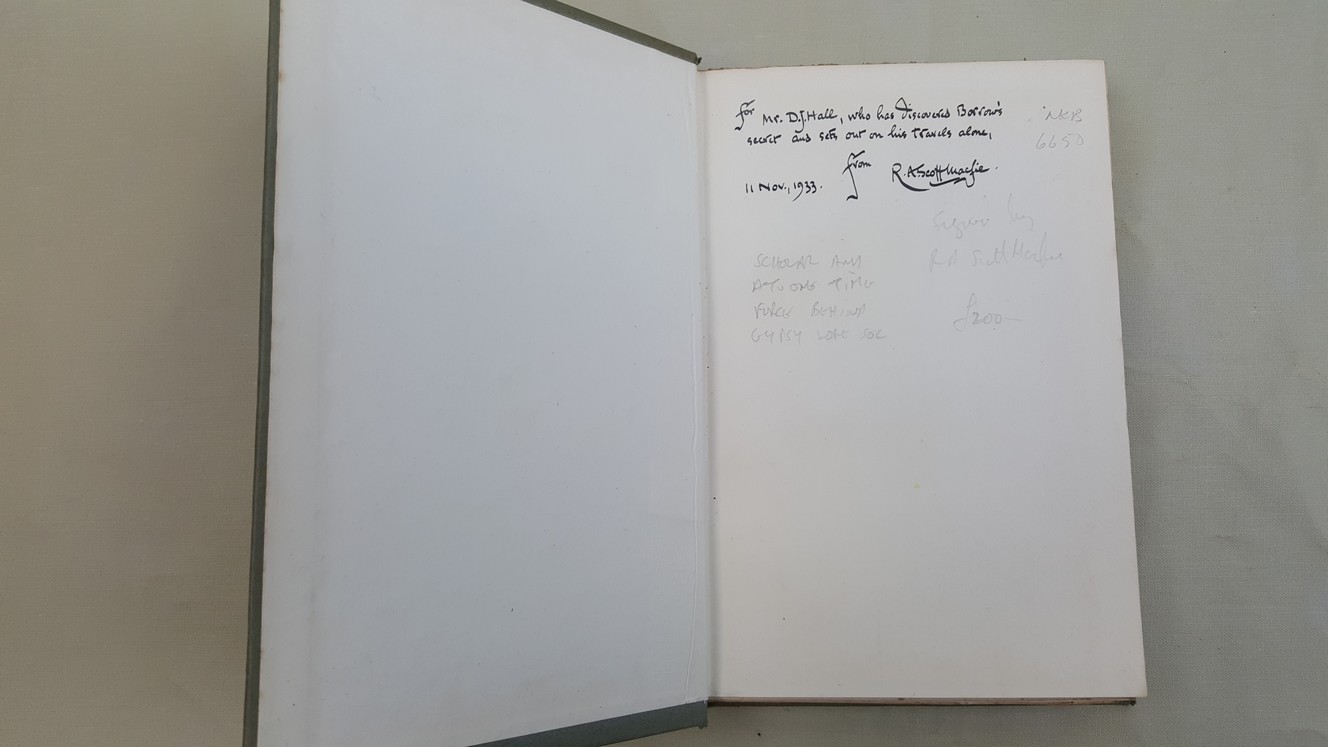 For Mr. D.J. Hall, who has discovered Borrow's
secret and sets out on his travels alone,
from
11 Nov., 1933. R. A Scott Macfie.
6650
Signed by
R A Scott Macfie
£200—
SCHOLAR AND
AT ONE TIME
FORCE BEHIND
GYPSY LORE SOC